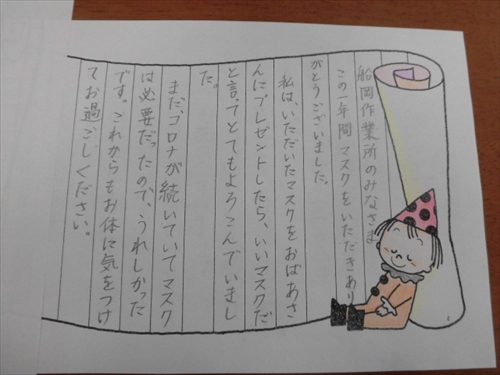 船岡作業所のみなさま
この一年間マスクをいただきあり
がとうございました。
私は、いただいたマスクをおばあさ
んにプレゼントしたら、いいマスクだ
と言ってとてもよろこんでいまし
た。
まだ、コロナが続いていてマスク
は必要だったので、うれしかった
です。これからもお体に気をつけ
てお過ごしください。